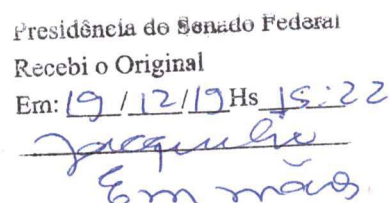 Presidência do Senado Federal
Recebi o Original
Em: 19 / 12/19 Hs 15:22
Em mãos